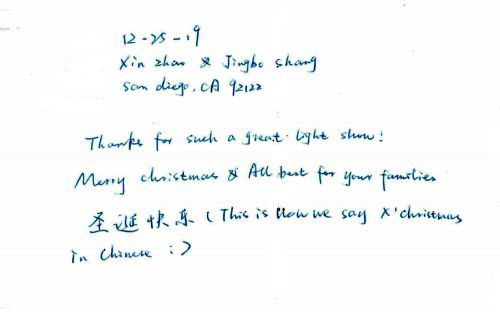 12-25-19
Xin zhao & Jingbo shang
San diego, CA 92122
Thanks for such a great light show!
Merry christmas & All best for your families
圣诞快乐 (This is How we say X'christmas
in Chinese :)